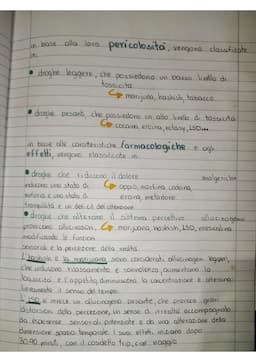 in base alla loro pericolosità, vengono classificate
in:
• droghe leggere, che possiedono un basso livello di
tossicità
marijuana, hashish, tabacco
• droghe pesanti, che possiedono un alto livello di tossicità
cocaina, eroina, ectasy, LSD...
in base alle caratteristiche farmacologiche e agli
effetti, vengono classificate in:
• droghe che riducono il dolore analgeriche
inducono uno stato di oppio, morfina, codeina,
euforia e uno stato di eroina, metadone
tranquillità e un calo del
• droghe che alterano il sistema percettivo allucinogene
provocano allucinazioni marijuana, hashish, LSD, mescalina
modificando le funzioni
sensoriali e la percezione della realtà
L'hashish e la marijuana sono considerati allucinogeni leggeri,
che inducono rilassamento e sonnolenza, aumentano la
loquacità e l'appetito, diminuiscono la concentrazione e alterano
lievemente il senso del tempo.
L'LSD è invece un allucinogeno pesante, che provoca gravi
distorsioni della percezione, un senso di irrealtà accompagnato
da esperienze sensoriali potenziate e da una alterazione della
dimensione spazio temporale. I suoi effetti iniziano dopo
30-90 minuti, con il cosiddetto trip, cioè viaggio